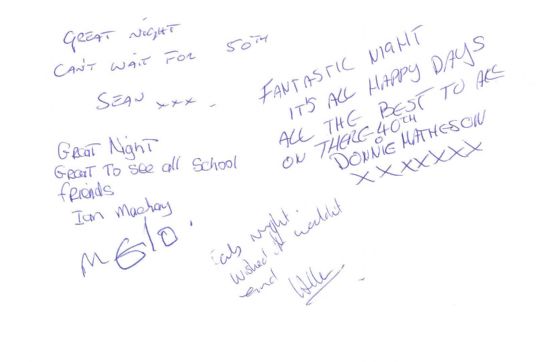 GREAT NIGHT
CAN'T WAIT FOR 50TH
SEAN xxx.
FANTASTIC NIGHT
IT'S ALL HAPPY DAYS
ALL THE BEST TO ALL
ON THERE 40TH
DONNIE MATHESON
XXXXXXX
Great Night
Great To see all School
friends
Ian Mackay
Fab night.
Wished it wouldnt
end